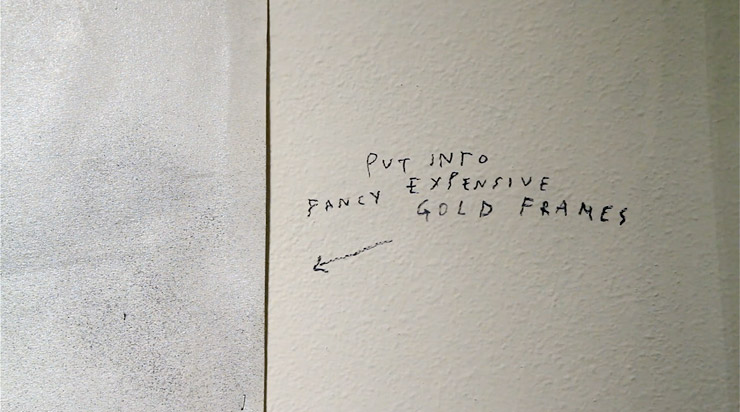 PUT INTO
FANCY EXPENSIVE
GOLD FRAMES